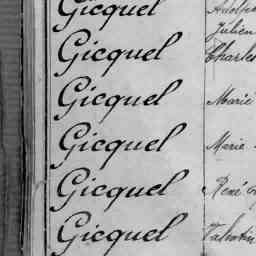 Gicquel
Julien
Gicquel Charles
Gicquel Marie
Gicquel Marie
Gicquel René
Gicquel Valentin